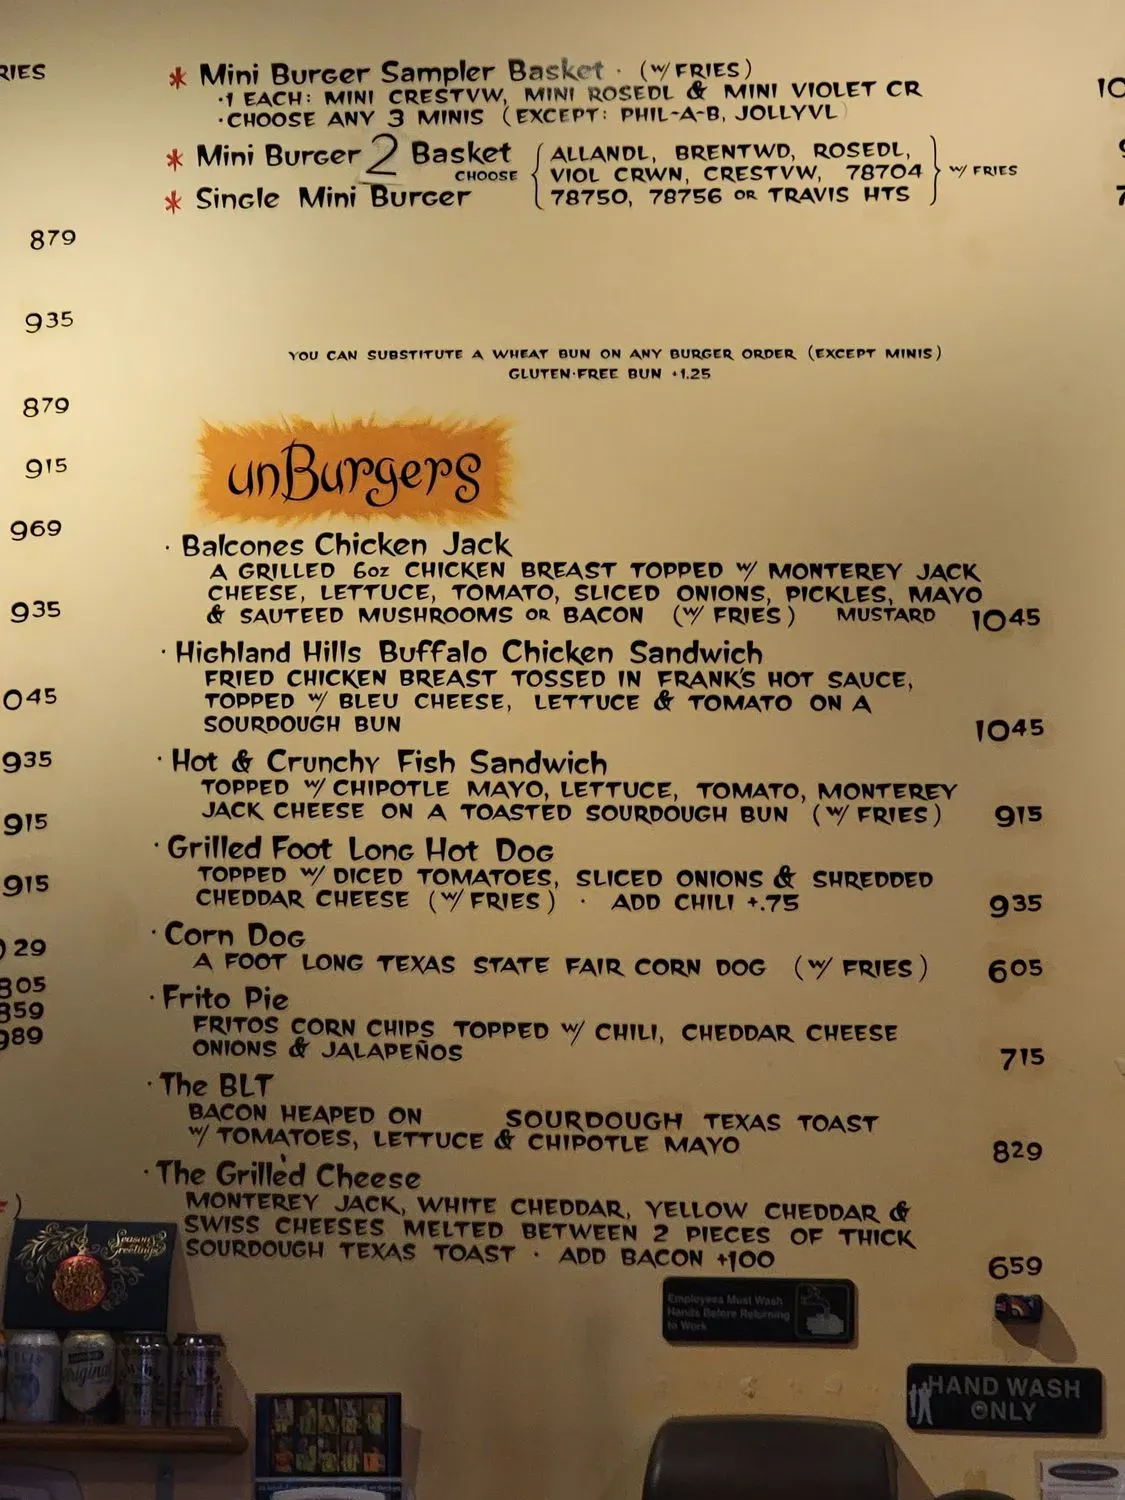 RIES
879
935
879
915
969
935
045
935
915
915
29
805
859
989
* Mini Burger Sampler Basket · (w/ FRIES)
·1 EACH: MINI CRESTVW, MINI ROSEDL & MINI VIOLET CR
·CHOOSE ANY 3 MINIS (EXCEPT: PHIL-A-B, JOLLYVL)
10
* Mini Burger 2 Basket
* Single Mini Burger
CHOOSE
ALLANDL, BRENTWD, ROSEDL,
VIOL CRWN, CRESTVW, 78704
78750, 78756 OR TRAVIS HTS
w/ FRIES
YOU CAN SUBSTITUTE A WHEAT BUN ON ANY BURGER ORDER (EXCEPT MINIS)
GLUTEN·FREE BUN +1.25
unBurgers
· Balcones Chicken Jack
A GRILLED 6oz CHICKEN BREAST TOPPED w/ MONTEREY JACK
CHEESE, LETTUCE, TOMATO, SLICED ONIONS, PICKLES, MAYO
& SAUTEED MUSHROOMS OR BACON (w/ FRIES) MUSTARD 1045
· Highland Hills Buffalo Chicken Sandwich
FRIED CHICKEN BREAST TOSSED IN FRANK'S HOT SAUCE,
TOPPED w/ BLEU CHEESE, LETTUCE & TOMATO ON A
SOURDOUGH BUN 1045
· Hot & Crunchy Fish Sandwich
TOPPED w/ CHIPOTLE MAYO, LETTUCE, TOMATO, MONTEREY
JACK CHEESE ON A TOASTED SOURDOUGH BUN (w/ FRIES) 915
· Grilled Foot Long Hot Dog
TOPPED w/ DICED TOMATOES, SLICED ONIONS & SHREDDED
CHEDDAR CHEESE (w/ FRIES) · ADD CHILI +.75 935
· Corn Dog
A FOOT LONG TEXAS STATE FAIR CORN DOG (w/ FRIES) 605
· Frito Pie
FRITOS CORN CHIPS TOPPED w/ CHILI, CHEDDAR CHEESE
ONIONS & JALAPEÑOS 715
· The BLT
BACON HEAPED ON SOURDOUGH TEXAS TOAST
w/ TOMATOES, LETTUCE & CHIPOTLE MAYO 829
· The Grill'd Cheese
MONTEREY JACK, WHITE CHEDDAR, YELLOW CHEDDAR &
SWISS CHEESES MELTED BETWEEN 2 PIECES OF THICK
SOURDOUGH TEXAS TOAST · ADD BACON +100 659
Season's
Greetings
Original
Employees Must Wash
Hands Before Returning
to Work
HAND WASH
ONLY